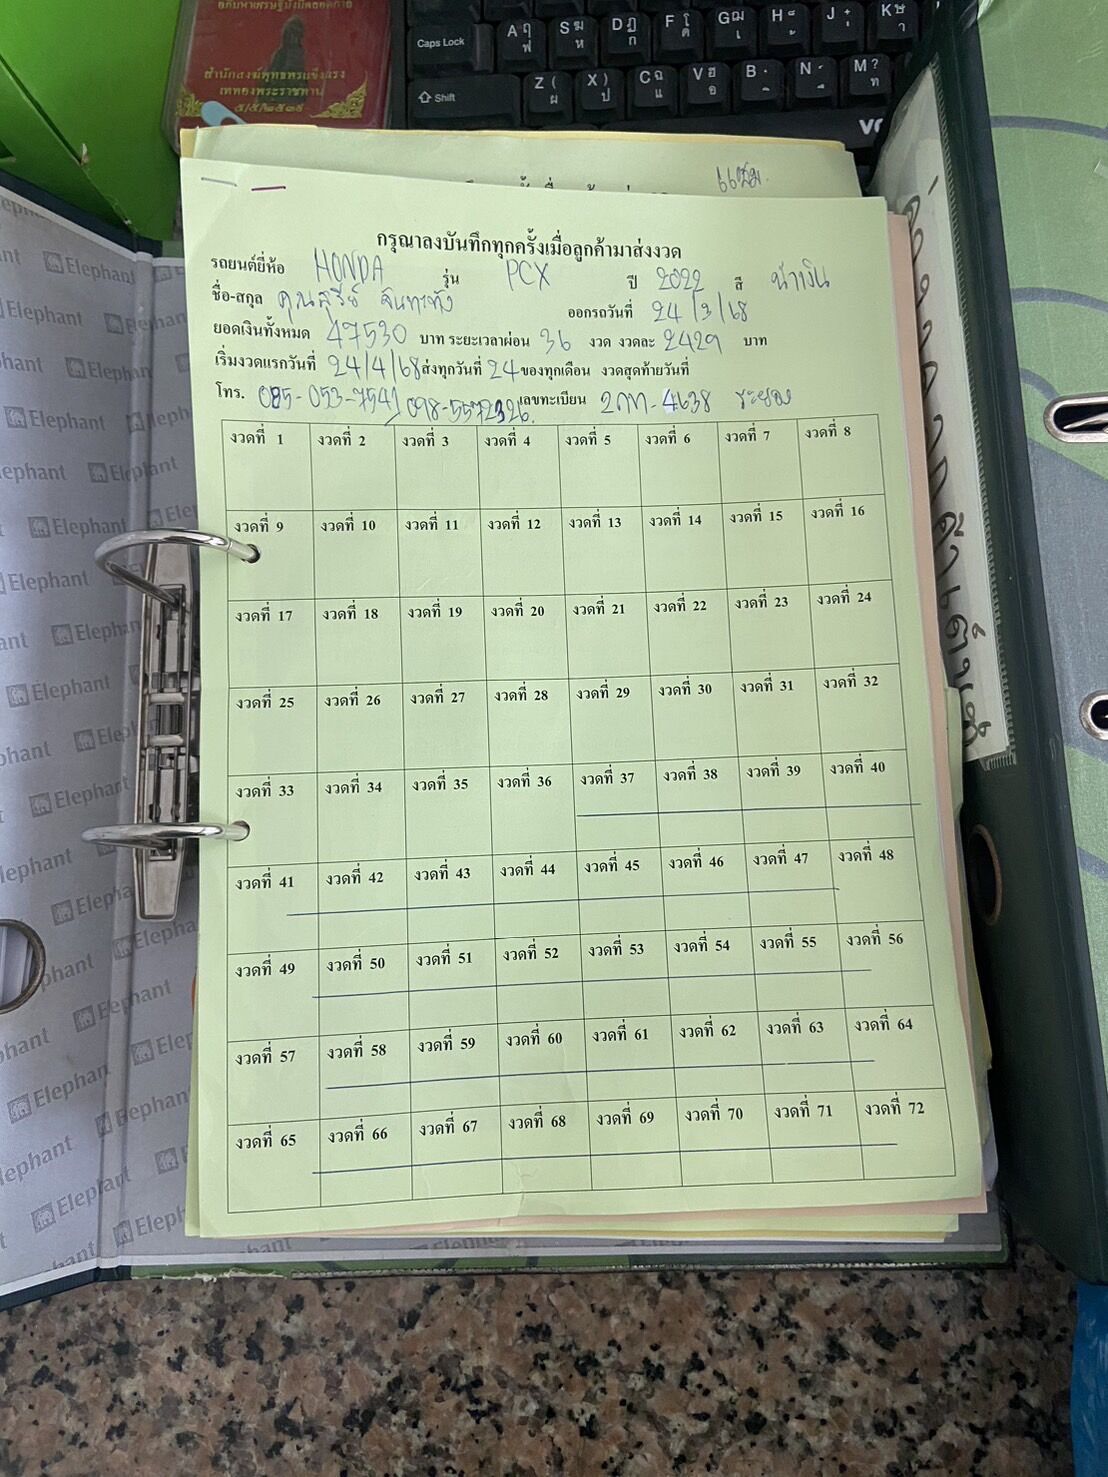 สำนักสงฆ์พุทธพรหมเชิงแรง
เททองพระราชทาน
๕/๕/๒๕๓๕
Caps Lock
A ฤ ฟ
S ฆ ห
D ฏ ก
F โ ด
G ฌ เ
H
J
K ษ า
Shift
Z ( ผ
X ) ป
C ฉ แ
V ฮ อ
B
N
M ? ท
กรุณาลงบันทึกทุกครั้งเมื่อลูกค้ามาส่งงวด
รถยนต์ยี่ห้อ HONDA รุ่น PCX ปี 2022 สี น้ำเงิน
ชื่อ-สกุล คุณสุรีย์ จันทะทัง ออกรถวันที่ 24/3/68
ยอดเงินทั้งหมด 47530 บาท ระยะเวลาผ่อน 36 งวด งวดละ 2429 บาท
เริ่มงวดแรกวันที่ 24/4/68 ส่งทุกวันที่ 24 ของทุกเดือน งวดสุดท้ายวันที่
โทร. 085-053-7541, 098-5572326. เลขทะเบียน 2กก-4638 ระยอง
งวดที่ 1 งวดที่ 2 งวดที่ 3 งวดที่ 4 งวดที่ 5 งวดที่ 6 งวดที่ 7 งวดที่ 8
งวดที่ 9 งวดที่ 10 งวดที่ 11 งวดที่ 12 งวดที่ 13 งวดที่ 14 งวดที่ 15 งวดที่ 16
งวดที่ 17 งวดที่ 18 งวดที่ 19 งวดที่ 20 งวดที่ 21 งวดที่ 22 งวดที่ 23 งวดที่ 24
งวดที่ 25 งวดที่ 26 งวดที่ 27 งวดที่ 28 งวดที่ 29 งวดที่ 30 งวดที่ 31 งวดที่ 32
งวดที่ 33 งวดที่ 34 งวดที่ 35 งวดที่ 36 งวดที่ 37 งวดที่ 38 งวดที่ 39 งวดที่ 40
งวดที่ 41 งวดที่ 42 งวดที่ 43 งวดที่ 44 งวดที่ 45 งวดที่ 46 งวดที่ 47 งวดที่ 48
งวดที่ 49 งวดที่ 50 งวดที่ 51 งวดที่ 52 งวดที่ 53 งวดที่ 54 งวดที่ 55 งวดที่ 56
งวดที่ 57 งวดที่ 58 งวดที่ 59 งวดที่ 60 งวดที่ 61 งวดที่ 62 งวดที่ 63 งวดที่ 64
งวดที่ 65 งวดที่ 66 งวดที่ 67 งวดที่ 68 งวดที่ 69 งวดที่ 70 งวดที่ 71 งวดที่ 72
Elephant
Elephant
Elephant
Elephant
Elephant
Elephant
Elephant